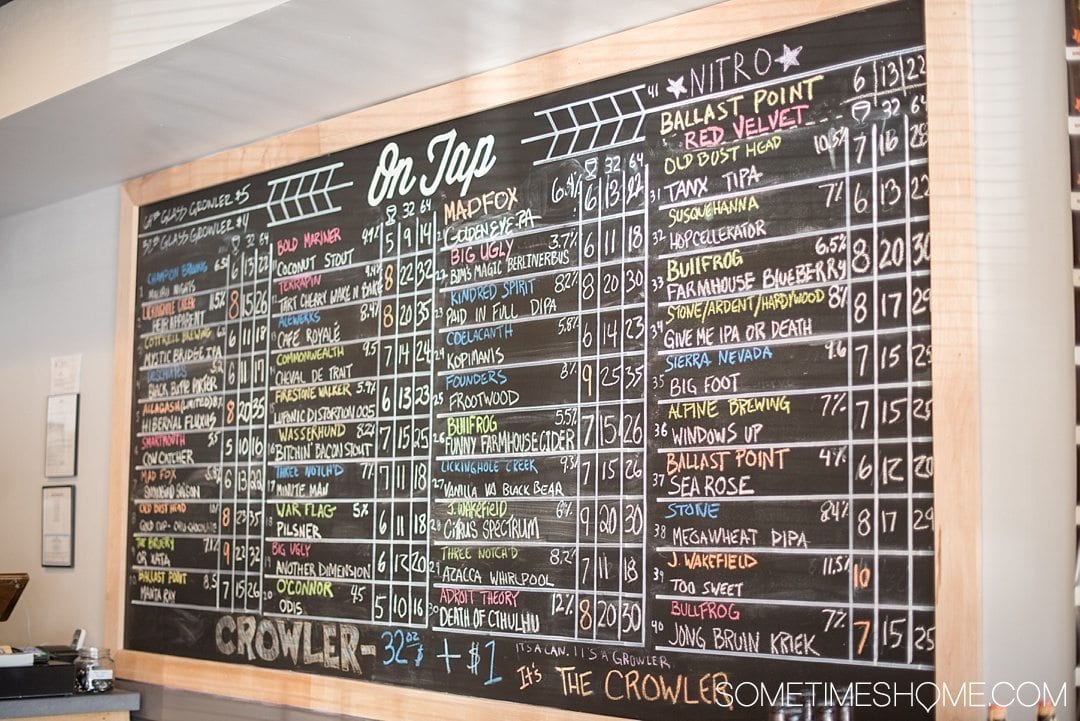 On Tap
64oz GLASS GROWLER $5
32oz GLASS GROWLER $4
32 64
CHAMPION BREWING 6 13 22
1 MALIBU NIGHTS
LICKINGHOLE CREEK 8 15 26
HEIR APPARENT
COTTRELL BREWING 6 11 18
MYSTIC BRIDGE IPA
DESCHUTES 6 11 17
BLACK BUTTE PORTER
ALLAGASH (LIMITED) 8 20 35
HIBERNAL FLUXUS
SMARTMOUTH 5 10 16
COW CATCHER
MAD FOX 6 13 22
SAISON
OLD BUST HEAD 8 23 35
GOLD CUP
THE BRUERY 7.1% 9 22 32
OR XATA
BALLAST POINT 8.5 7 15 26
10 MANTA RAY
32 64
BOLD MARINER 5 9 14
11 COCONUT STOUT
TERRAPIN 8 22 32
TART CHERRY WAKE N BAKE
ALEWERKS 8.4% 8 20 35
CAFE ROYALE
COMMONWEALTH 9.5 7 14 24
CHEVAL DE TRAIT
FIRESTONE WALKER 5.9% 6 13 23
LUPONIC DISTORTION 005
WASSERHUND 8.2% 7 15 25
BITCHIN' BACON STOUT
THREE NOTCH'D 7% 7 11 18
17 MINUTE MAN
WAR FLAG 5% 6 11 18
PILSNER
BIG UGLY 6 12 20
ANOTHER DIMENSION
O'CONNOR 4.5 5 10 16
20 ODIS
32 64
MADFOX 6.4% 6 13 22
GOLDEN EYE PA
BIG UGLY 3.7% 6 11 18
22 BJM'S MAGIC BERLINERBUS
KINDRED SPIRIT 8.2% 8 20 30
PAID IN FULL DIPA
COELACANTH 5.8% 6 14 23
24 KOPIMANIS
FOUNDERS 8% 9 25 35
FROOTWOOD
BULLFROG 5.5% 7 15 26
26 FUNNY FARMHOUSE CIDER
LICKINGHOLE CREEK 9.3% 7 15 26
VANILLA VA BLACK BEAR
J. WAKEFIELD 6% 9 20 30
28 CITRUS SPECTRUM
THREE NOTCH'D 8.2% 7 11 18
29 AZACCA WHIRLPOOL
ADROIT THEORY 12% 8 20 30
30 DEATH OF CTHULHU
41 NITRO
BALLAST POINT 6 13 22
RED VELVET
32 64
OLD BUST HEAD 10.5% 7 16 28
31 TANX TIPA
SUSQUEHANNA 7% 7 13 22
32 HOPCELLERATOR
BULLFROG 6.5% 8 20 30
33 FARMHOUSE BLUEBERRY
STONE/ARDENT/HARDYWOOD 8% 8 17 29
34 GIVE ME IPA OR DEATH
SIERRA NEVADA 9.6 7 15 25
35 BIG FOOT
ALPINE BREWING 7% 7 15 25
36 WINDOWS UP
BALLAST POINT 4% 6 12 20
37 SEA ROSE
STONE 8.4% 8 17 29
38 MEGAWHEAT DIPA
J. WAKEFIELD 11.5% 10
39 TOO SWEET
BULLFROG 7% 7 15 25
40 JONG BRUIN KRIEK
CROWLER- 32oz + $1
IT'S A CAN. IT'S A GROWLER.
It's THE CROWLER
SOMETIMESHOME.COM